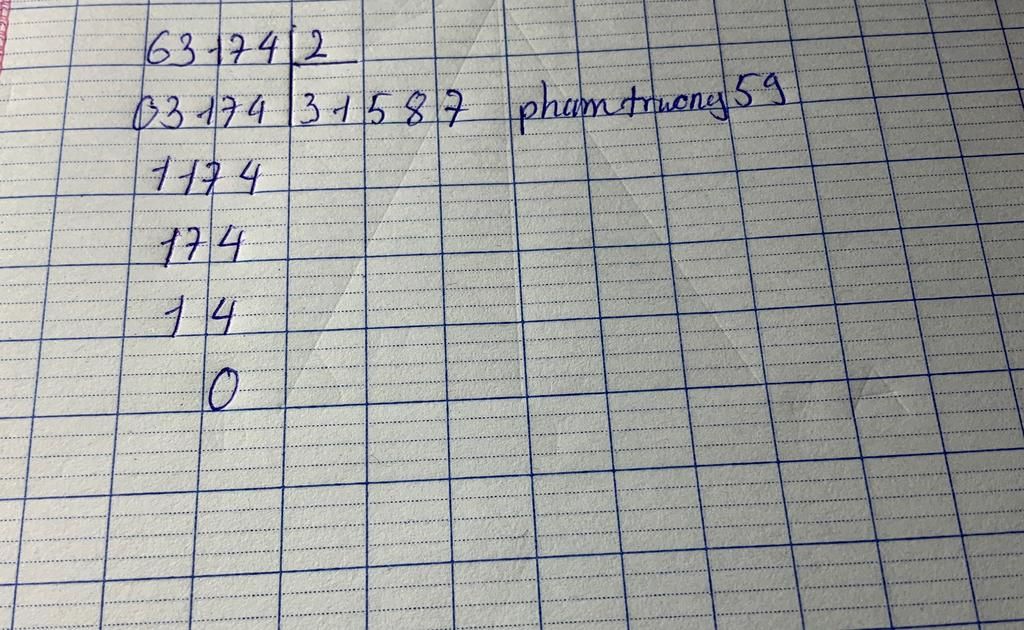 63174 2
03174 31587 phamtruong59
1174
174
14
0